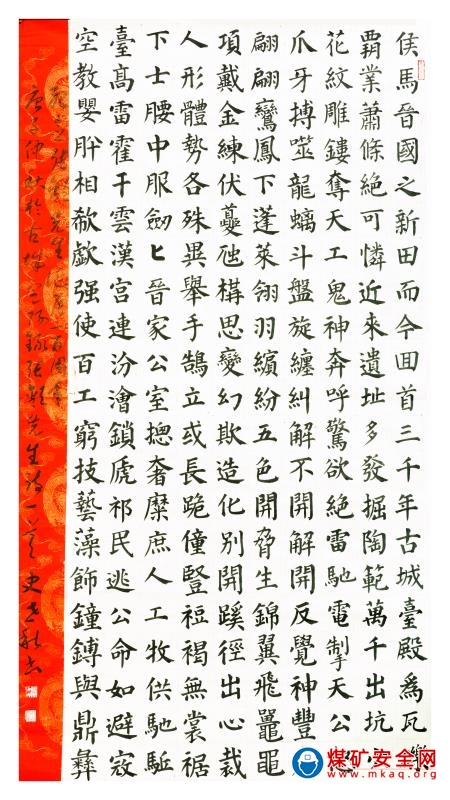 侯馬晉國之新田而今囬首三千年古城臺殿爲瓦
霸業蕭條絶可憐近來遺址多發掘陶範萬千出坑
花紋雕鏤奪天工鬼神奔呼驚欲絶雷馳電掣天公
爪牙搏噬龍螭斗盤旋纏糾解不開解開反覺神豐
翩翩鸞鳳下蓬萊翎羽繽紛五色開脅生錦翼飛鼉黽
項戴金練伏夔虺構思變幻欺造化別開蹊徑出心裁
人形體勢各殊異舉手鵠立或長跪僮豎裋褐無裳裾
下士腰中服劒匕晉家公室摠奢糜庶人工牧供馳駈
臺高雷霍干雲漢宮連汾澮鎖虒祁民逃公命如避寇
空教嬰肸相欷歔强使百工窮技藝藻飾鐘鎛與鼎彝
先生
庚子仲秋於古 張頷先生詩一 史
煤矿安全网
www.mkaq.org